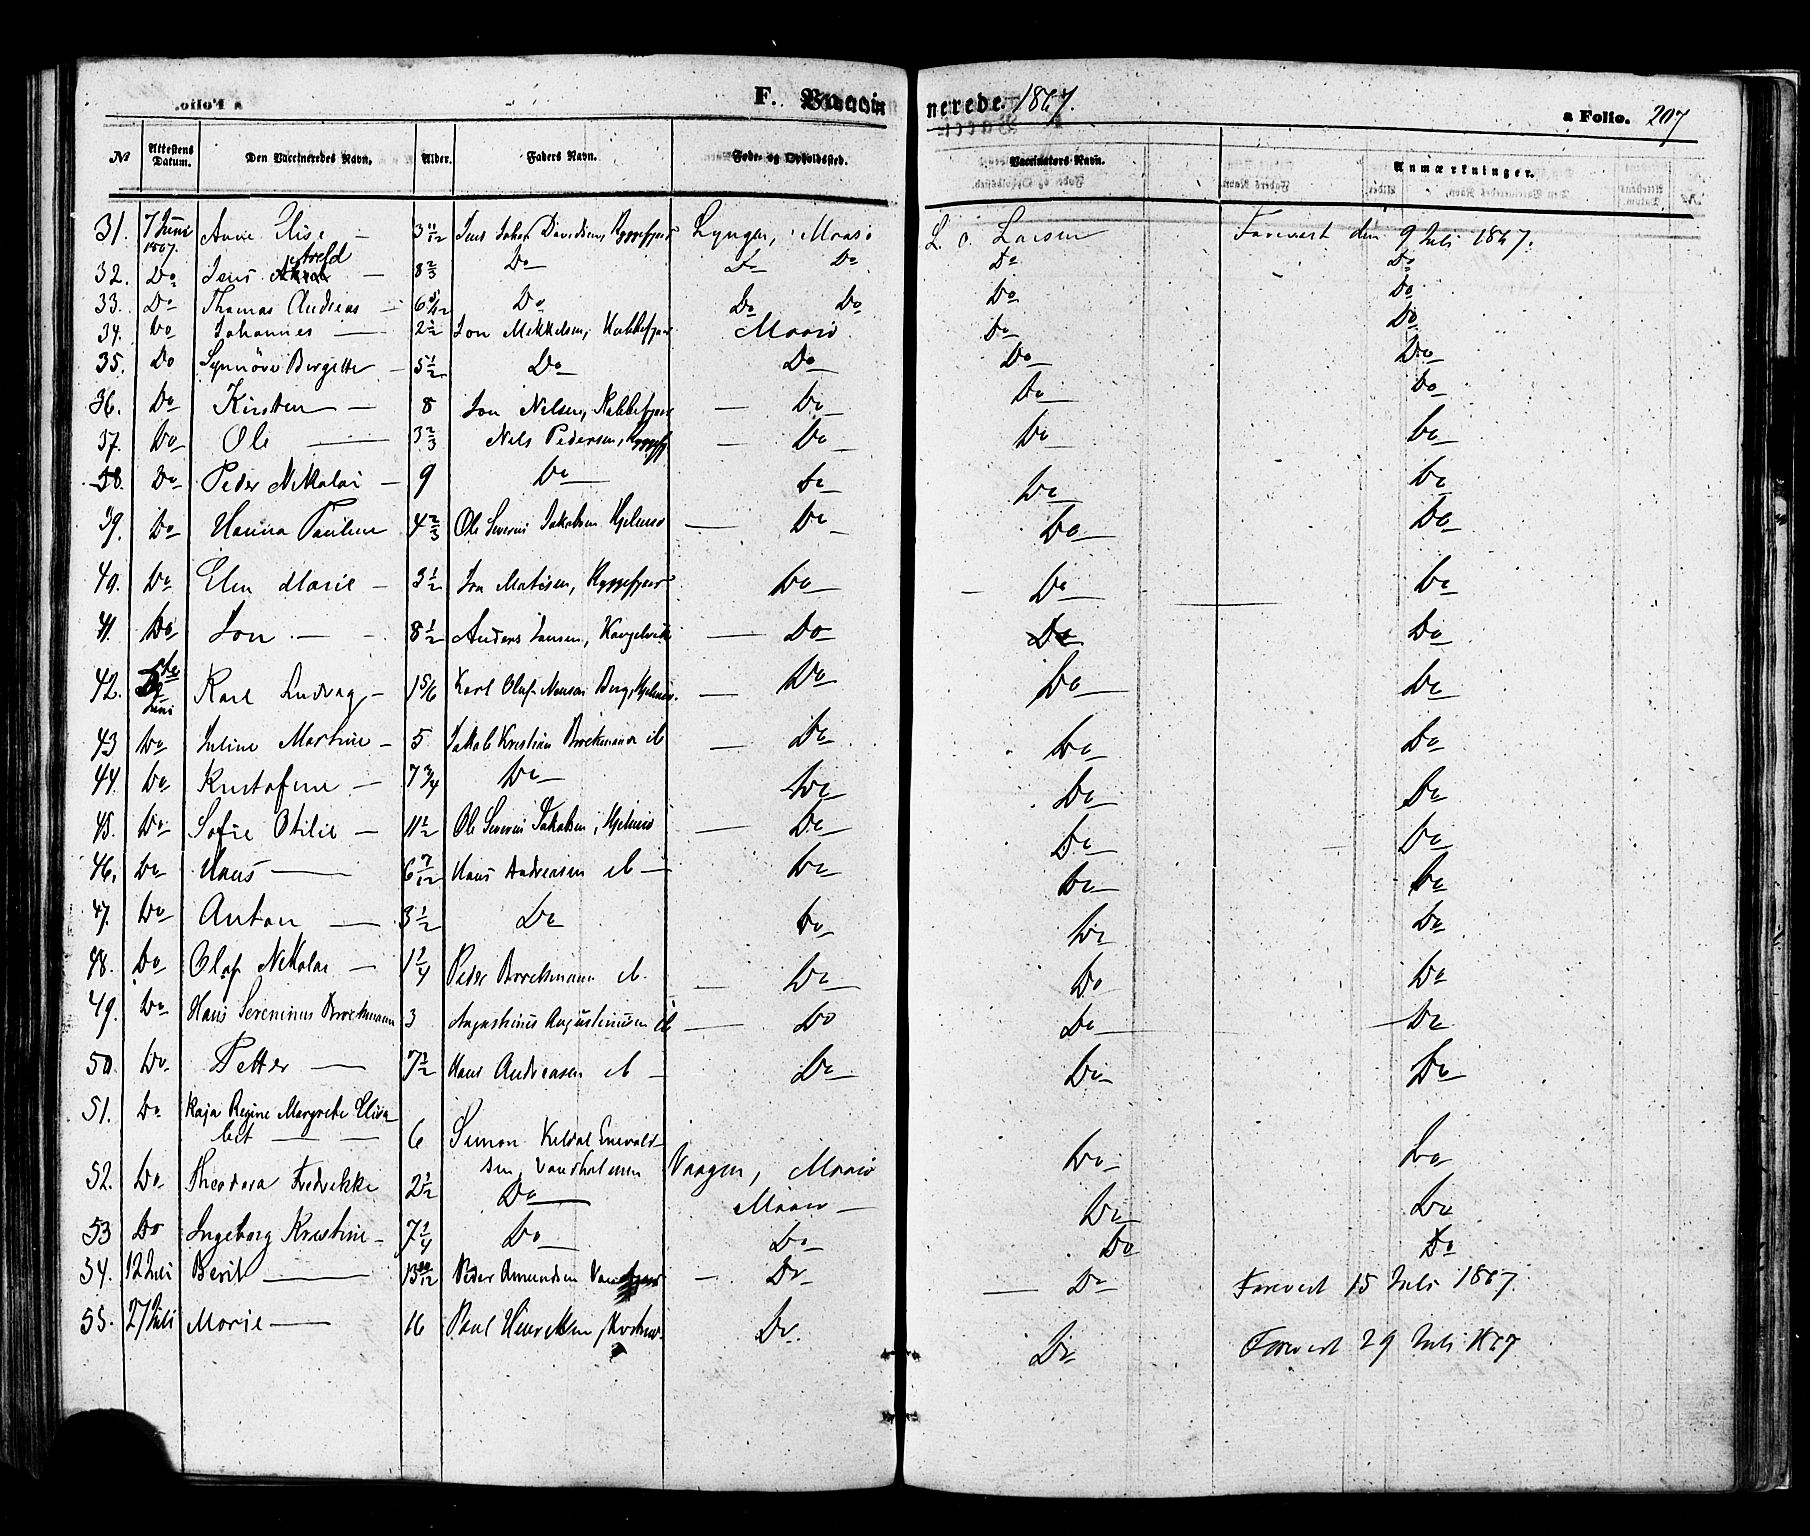 F. Vaccinerede. 1867. a Folio. 207
№ Attestens Datum. Den Vaccineredes Navn. Alder. Faders Navn. Føde- og Opholdssted. Vaccinators Navn. Anmærkninger.
31. 7 Juni 1867. Anne Elise — 3 11/12 Jens Jakob Davidsen, Ryggefjord Lyngen, Maasø L. O. Larsen Forevist den 9 Juli 1867.
32. Do Jens — 8 2/3 Do Do Do Do Do
33. Do Thomas Andreas — 6 5/12 Do Do Do Do Do
34. Do Johannes — 2 1/2 Jon Mikkelsen, Kobbefjord Maasø Do Do
35. Do Synnöve Bergitte — 5 1/2 Do Do Do Do
36. Do Kirsten — 8 Jon Nilsen, Kobbefjord — Do Do Do
37. Do Ole — 3 2/3 Nels Pedersen, Ryggefj — Do Do Do
38. Do Peder Nikolai — 9 Do Do Do Do
39. Do Hanna Pauline 4 2/3 Ole Severin Jakobsen Hjelmsö — Do Do Do
40. Do Elen Marie — 3 1/2 Jon Matisen, Ryggefjord Do Do Do
41. Do Jon — 8 1/2 Anders Jansen, — Do Do Do
42. Juni Karl Ludvag — 1 5/6 Karl Olaf Berg, Hjelmsö. — Do Do Do
43 Do Juline Martine — 5 Jakob Kristian Brockmann ib — Do Do Do
44. Do Kristofine — 7 3/4 Do Do Do Do
45. Do Sofie Otilie — 11 1/2 Ole Severin Jakobsen, Hjelmsö — Do Do Do
46. Do Hans — 6 7/12 Hans Andreasen ib — Do Do Do
47. Do Anton — 3 1/2 Do Do Do Do
48. Do Olaf Nikolai — Peder Brockmann ib. — Do Do Do
49. Do Hans Severinus Brockmann 3 Augustinus Augustinusen ib — Do Do Do
50. Do Petter — 7 1/2 Hans Andreasen ib — Do Do Do
51. Do Kaja Regine Margrete Elisa-
bet — 6 Simon Keldal Enevold- Do Do
sen, Vaagen, Maasø
52. Do Theodora Fredrekke 2 1/2 Do Maasø — Do Do
53 Do Ingeborg Kristine — 7 1/4 Do Do Do Do
54. 12 Juli Berit — 13 10/12 Peder Amundsen — Do — Do Forevist 15 Juli 1867.
55. 27 Juli Marie — 16 Paul Henriksen Do. Do Forevist 29 Juli 1867